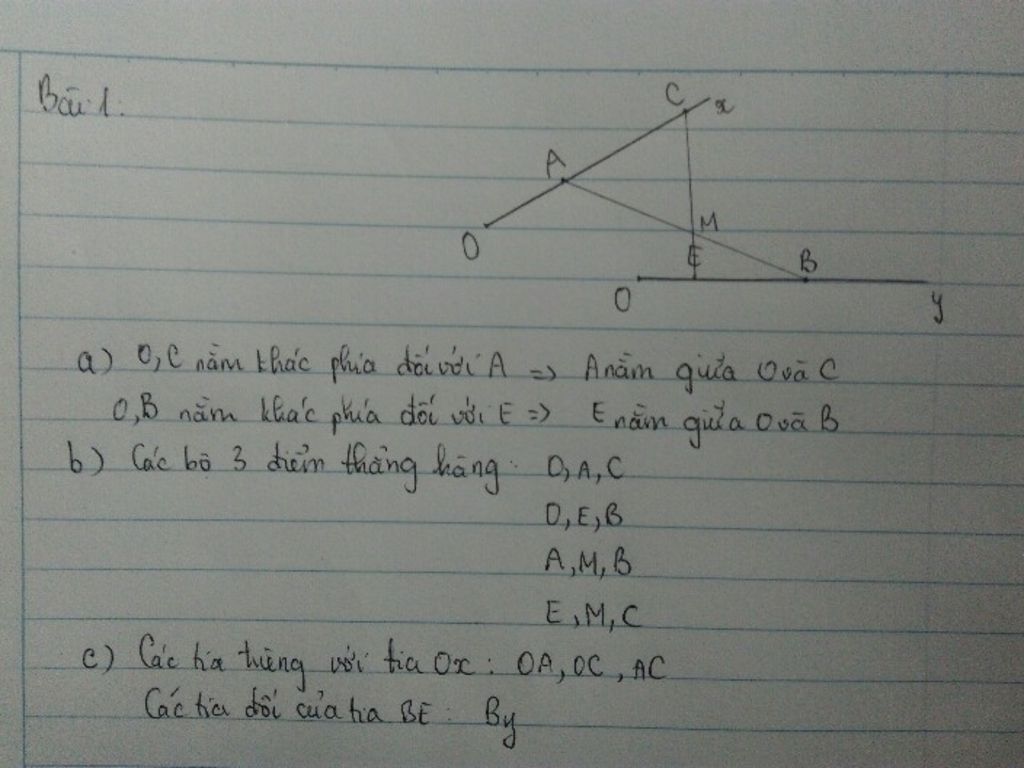 Bài 1:
C x
A
M
O
E B
O y
a) O, C nằm khác phía đối với A => A nằm giữa O và C
O, B nằm khác phía đối với E => E nằm giữa O và B
b) Các bộ 3 điểm thẳng hàng: O, A, C
O, E, B
A, M, B
E, M, C
c) Các tia trùng với tia Ox: OA, OC, AC
Các tia đối của tia BE: By